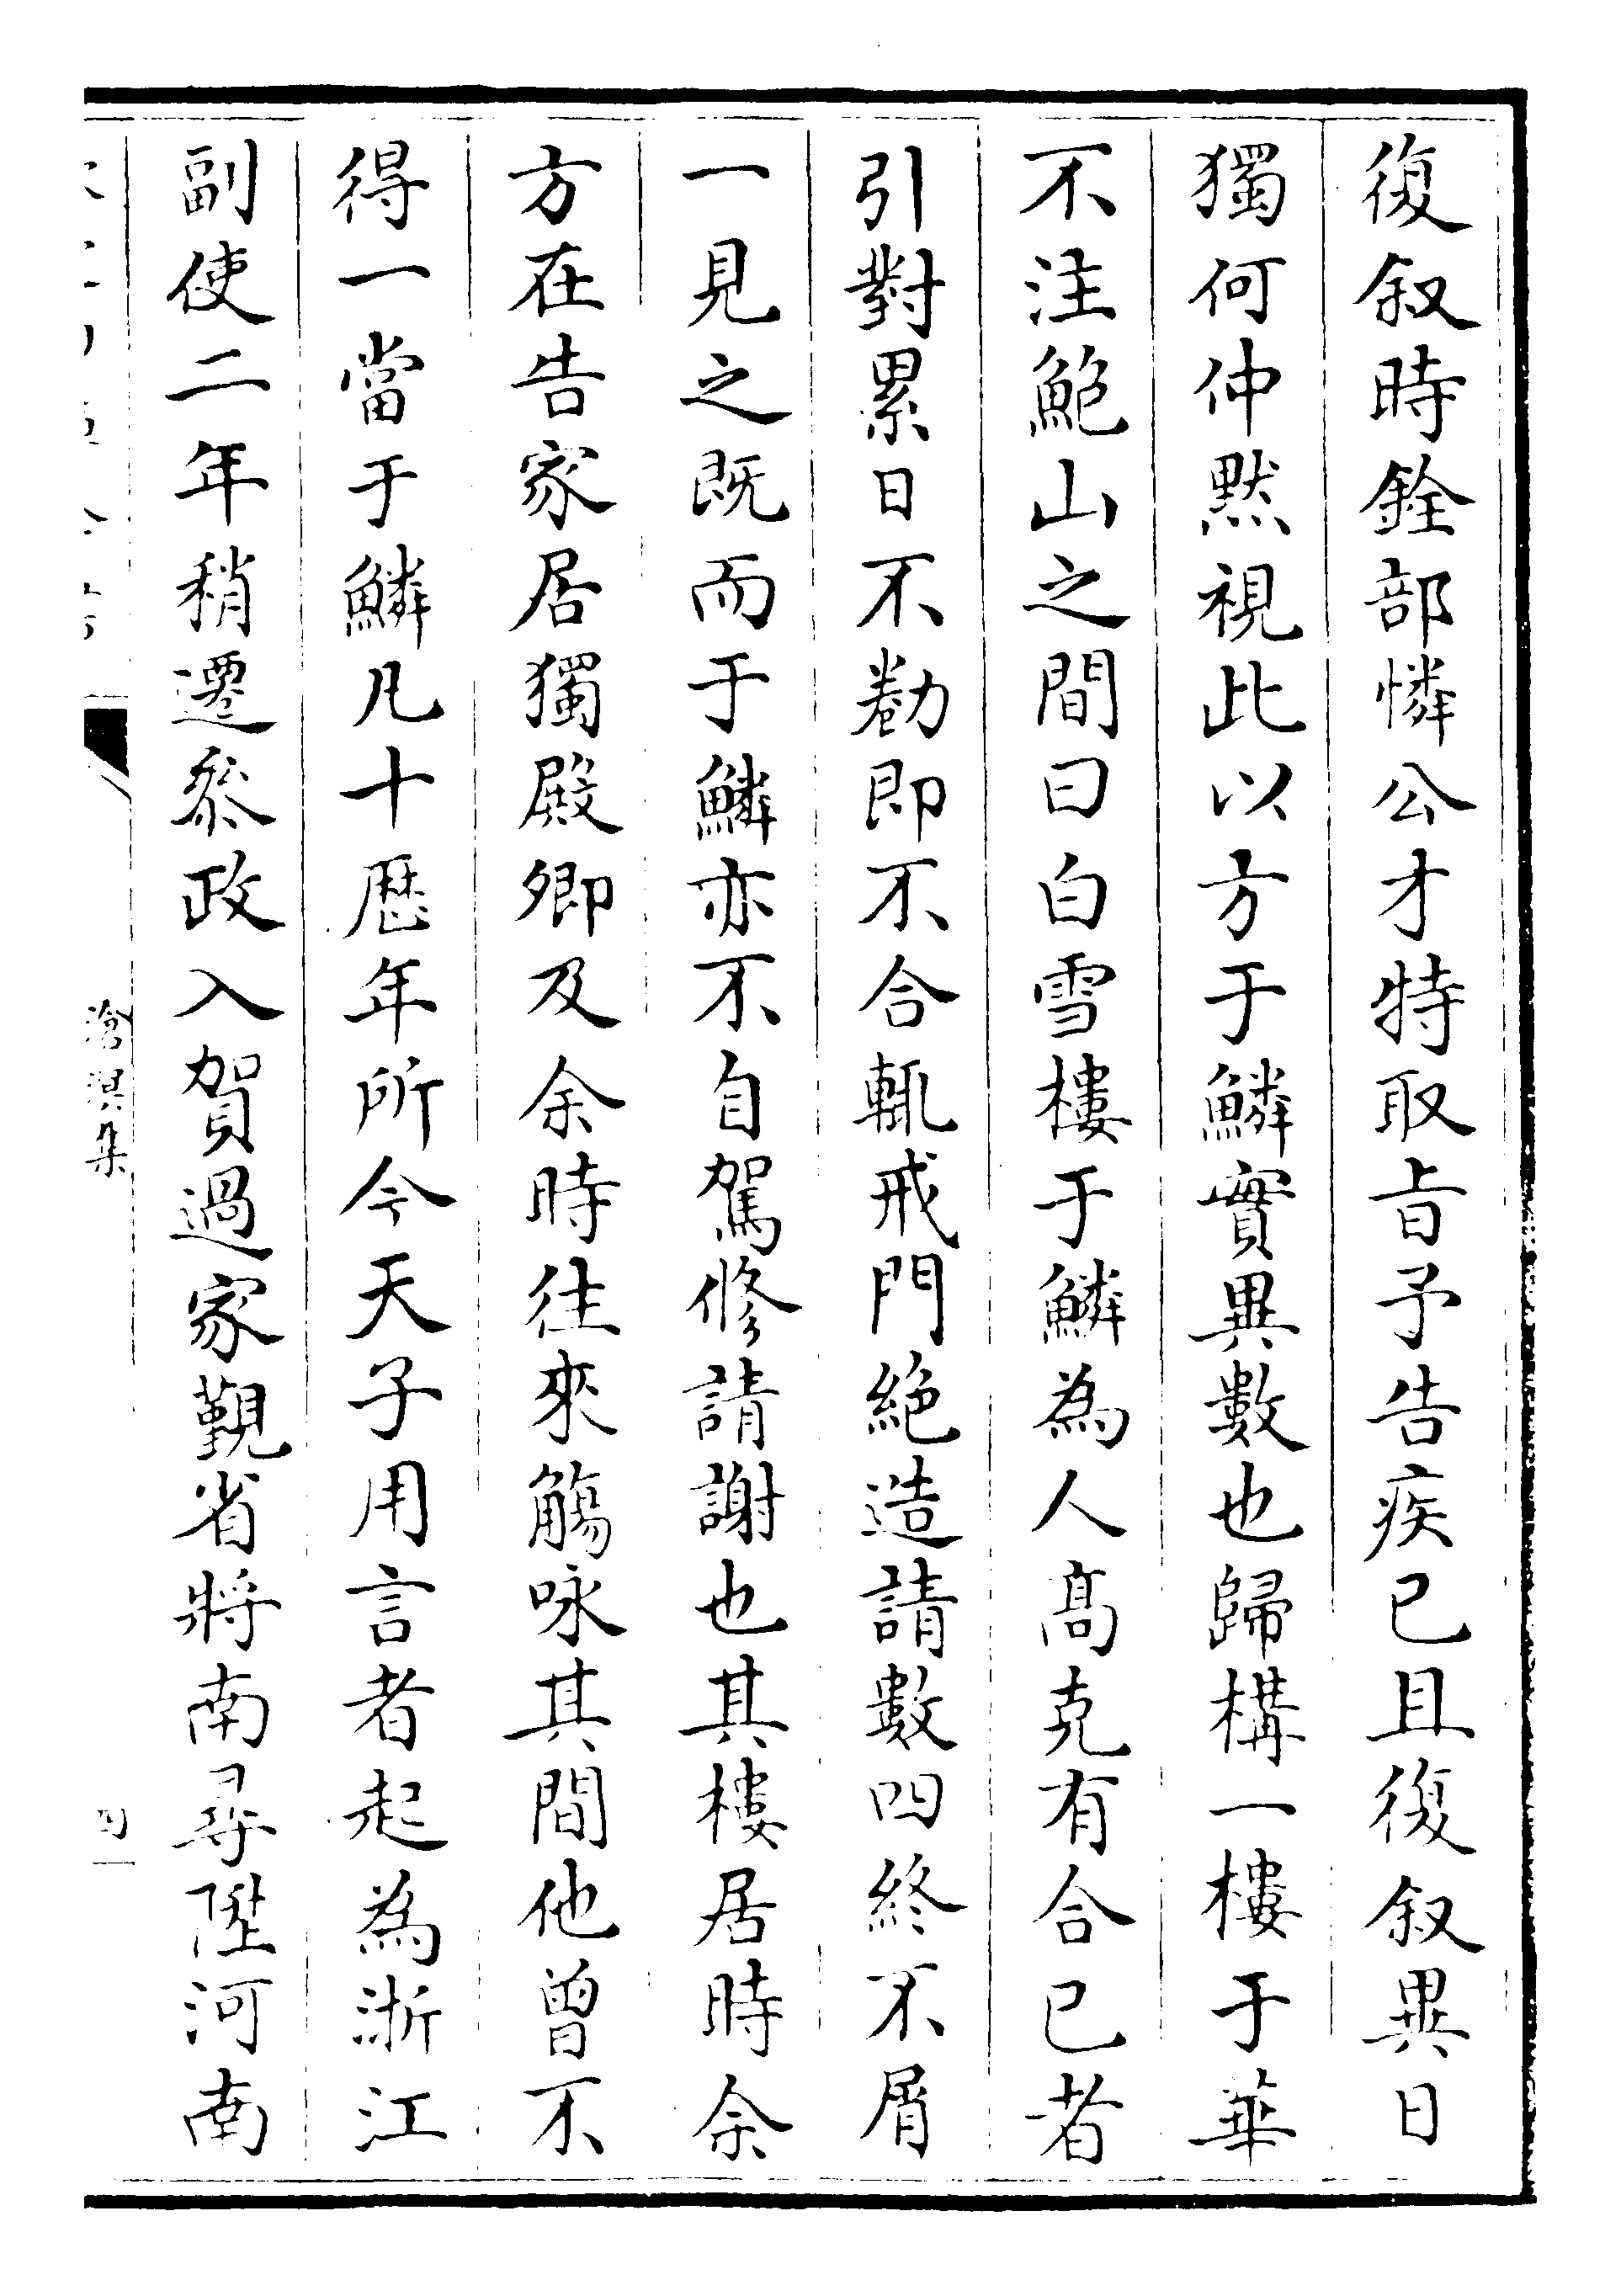 復叙時銓部憐公才特取旨予告疾已且復叙異日
獨何仲黙視此以方于鱗實異數也歸構一樓于華
不注鮑山之間曰白雪樓于鱗為人髙克有合已者
引對累日不勌即不合輒戒門絶造請數四終不屑
一見之既而于鱗亦不自駕修請謝也其樓居時余
方在告家居獨殿卿及余時往來觴咏其間他曾不
得一當于鱗凡十厯年所今天子用言者起為浙江
副使二年稍遷叅政入賀過家覲省將南尋陞河南
滄溟集